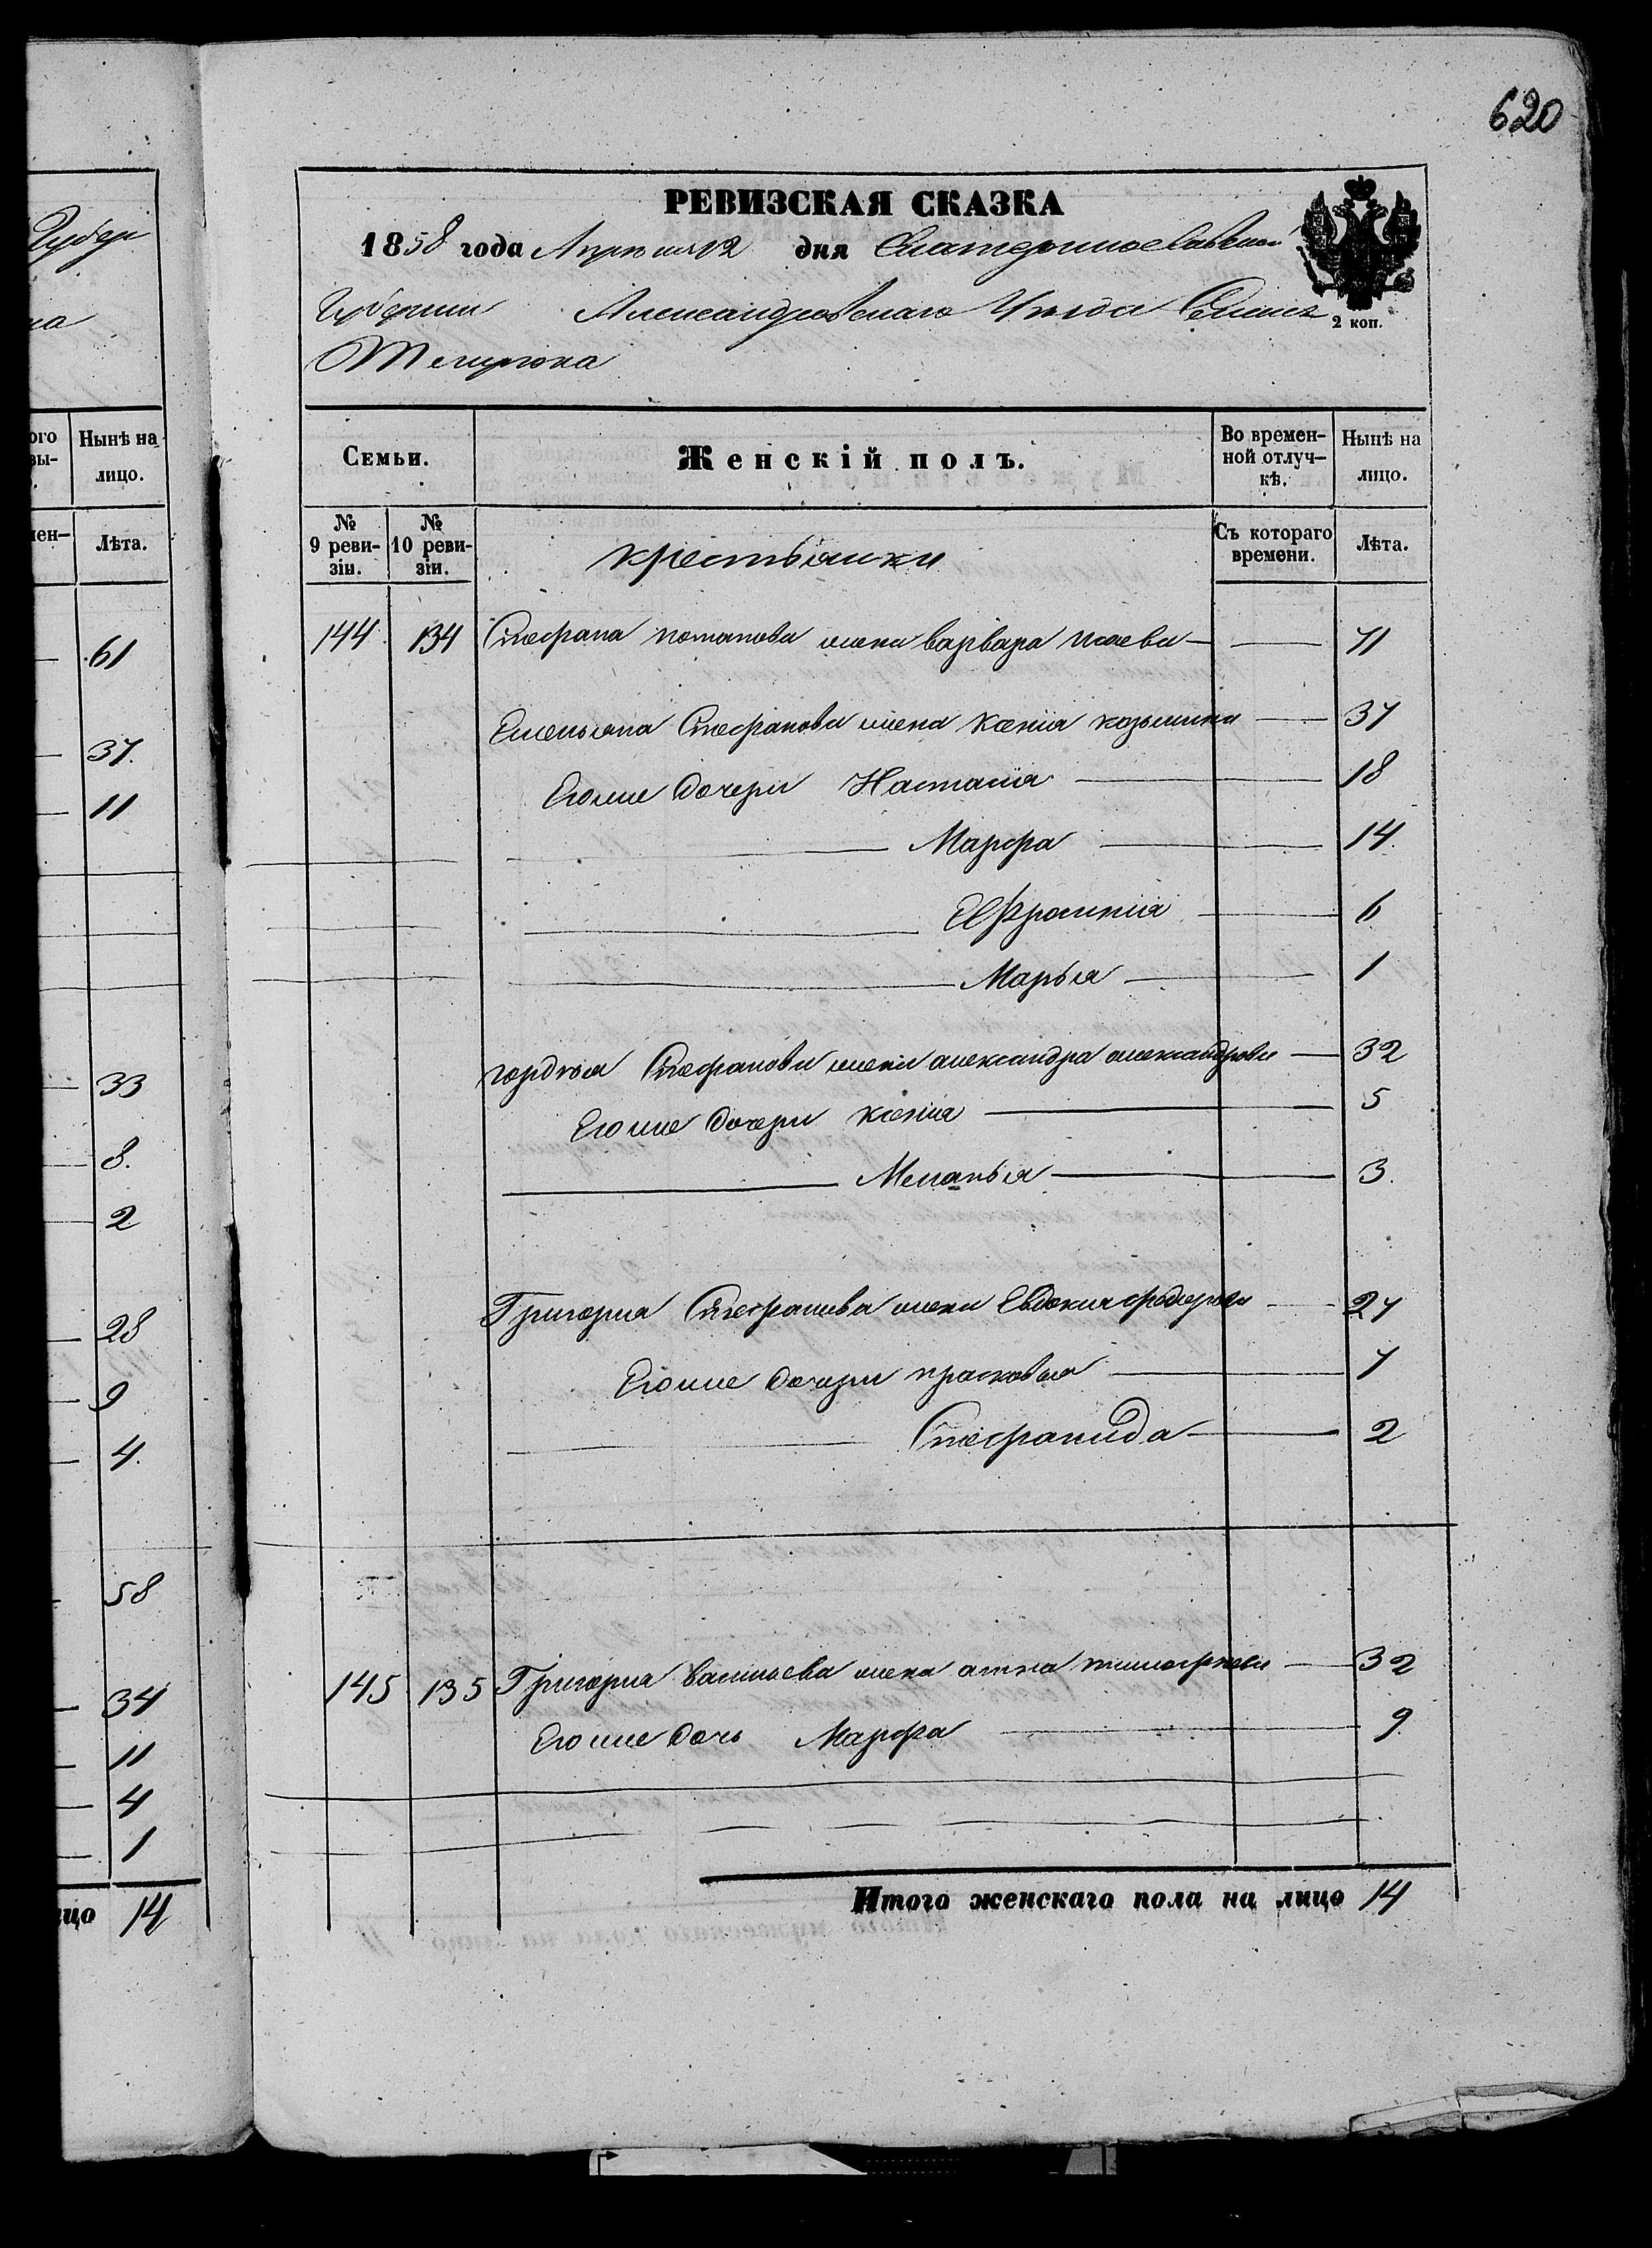 620
РЕВИЗСКАЯ СКАЗКА
1858 года Апреля 12 дня Екатеринославской
Губернии Александровского Уезда Селенiя
Темрюка
2 коп.
Губер
на
Семьи.
Женскій полъ.
Во времен-
ной отлуч-
кѣ.
Нынѣ на
лицо.
№
9 реви-
зіи.
№
10 реви-
зіи.
крестьянки
Съ котораго
времени.
Лѣта.
144 134 Стефана потапова жена варвара исаева 71
Емельяна Стефанова жена ксенiя козьмина 37
Его же дочери Настасiя 18
Марфа 14
Ефросинiя 6
Марья 1
гордея Стефанова жена александра александрова 32
Его же дочери ксенiя 5
Меланья 3.
Григорiя Стефанова жена Евдокiя федорова 27
Его же дочери прасковья 7
Стефанида 2
145 135 Григорiя васильева жена анна тимофеева 32
Его же дочь Марфа 9
Итого женскаго пола на лицо 14
ого
вы-
Нынѣ на
лицо.
мен-
Лѣта.
61
37.
11
33
8.
2
28
9
4.
58
34
11
4
1
ицо 14